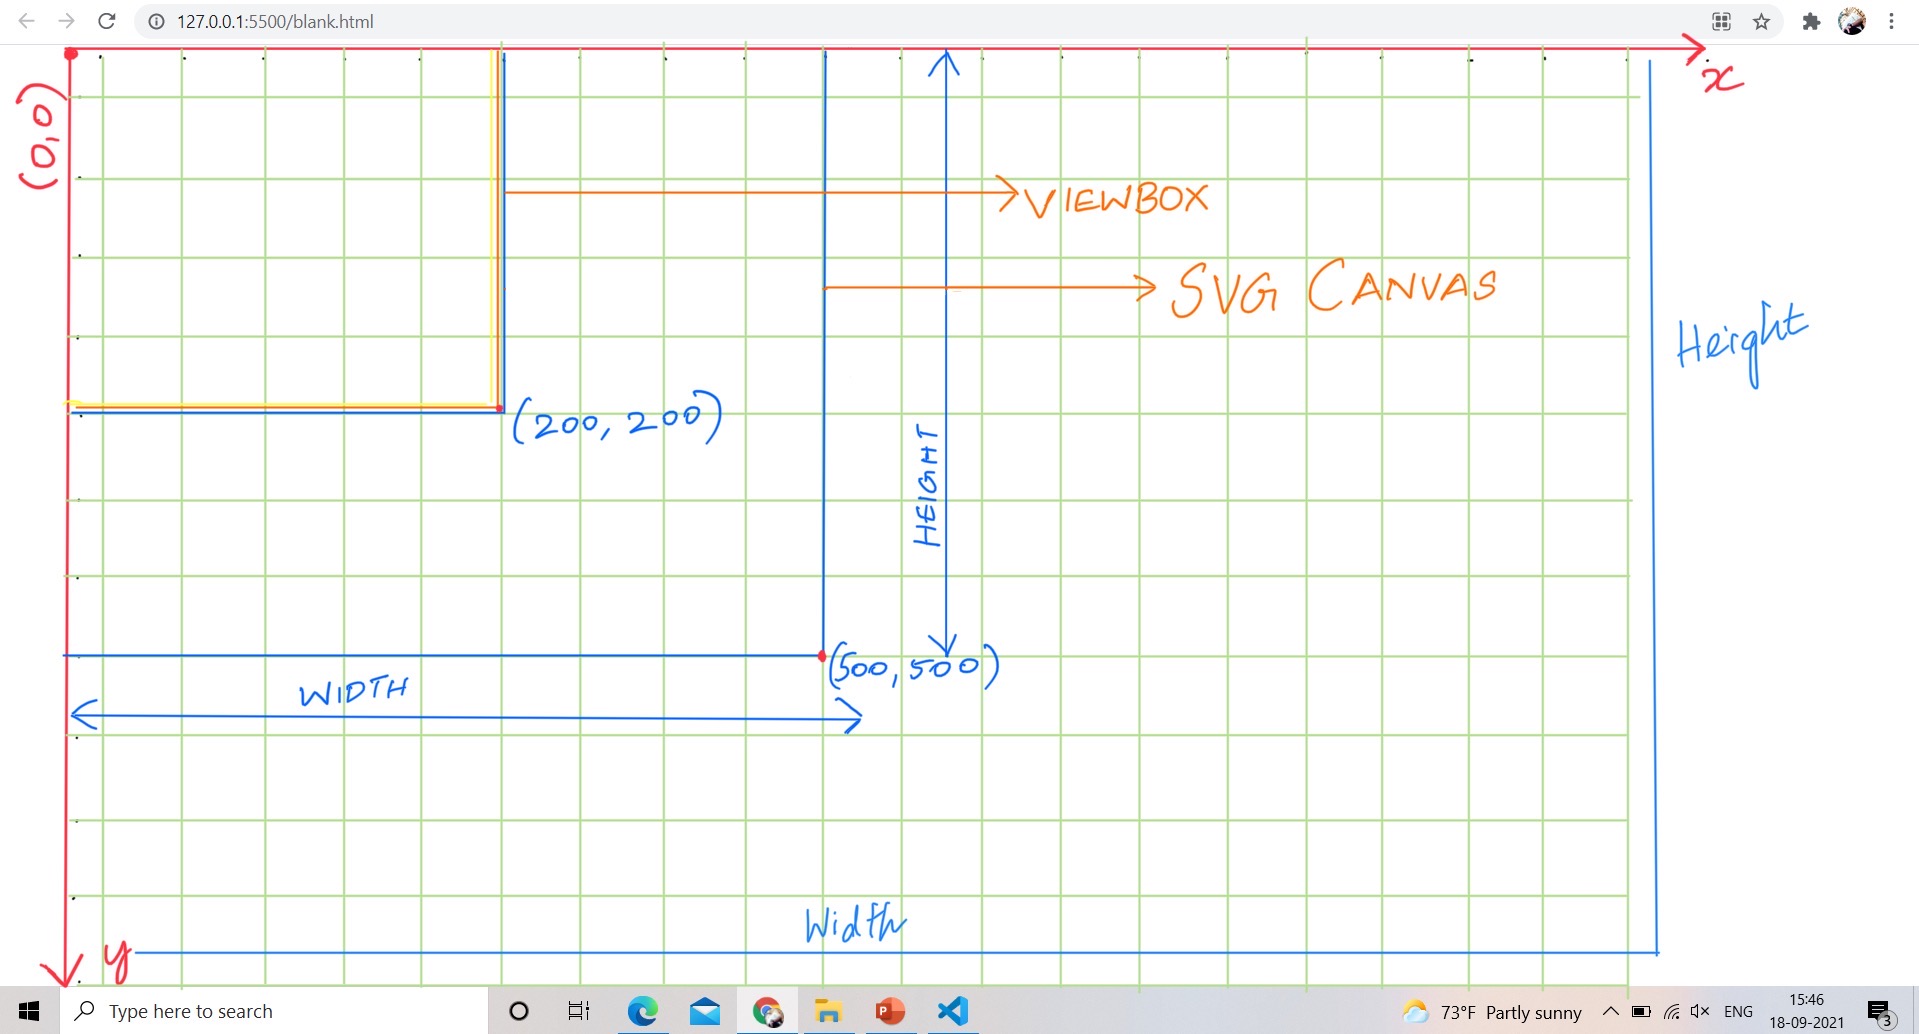 127.0.0.1:5500/blank.html
x
(0,0)
VIEWBOX
SVG CANVAS
Height
(200, 200)
HEIGHT
(500, 500)
WIDTH
Width
y
Type here to search
73°F Partly sunny
ENG
15:46
18-09-2021
3